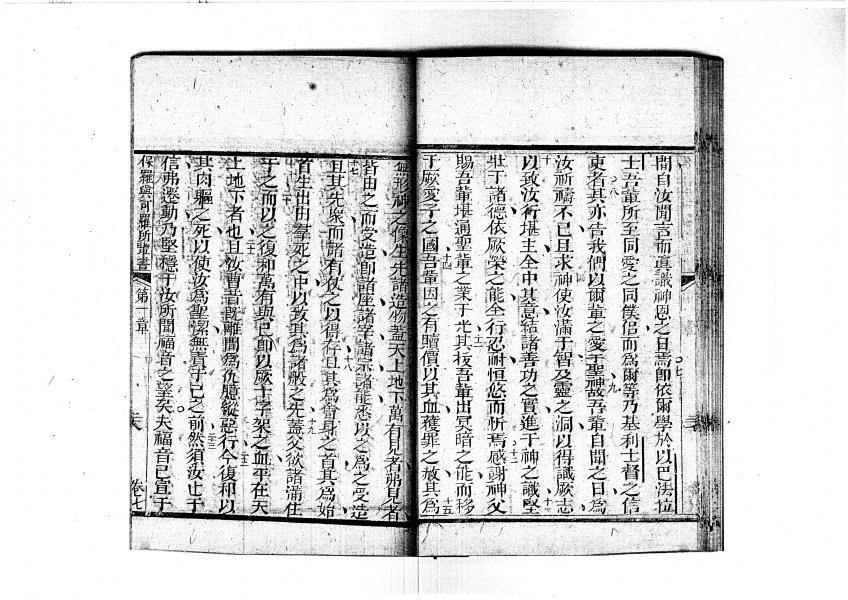 間自汝聞言而眞識神恩之日焉即依爾學於以巴法拉
士吾輩所至同愛之同僕侶而爲爾等乃基利士督之信
吏者其亦告我們以爾輩之愛于聖神故吾輩自聞之日爲
汝祈禱不已且求神使汝滿于智及靈之洞以得識厥志
以致汝行堪主全中其意結諸善功之實進于神之識堅
壯于諸德依厥榮之能全行忍耐恒悠而忻焉感謝神父
賜吾輩堪通聖輩之業于光其拔吾輩出冥暗之能而移
于厥愛子之國吾輩因之有贖價以其血穫罪之赦其爲
無形神之像生先諸造物蓋天上地下萬有見者弗見者
皆由之而受造即諸座諸宰諸宗諸能悉以之爲之受造
且其先衆而諸有伏之以得存且其爲會身之首其爲始
者生出由羣死之中以致其爲諸般之先蓋父欲諸滿住
于之而以之復和萬有與己即以厥十字架之血平在天
上地下者也且汝曹昔旣離間爲仇臆縱惡行今復和以
其肉軀之死以使汝爲聖潔無責于己之前然須汝止于
信弗遷動乃堅穩于汝所聞福音之望矣夫福音已宣于
保羅與可羅所輩書 第一章 卷七